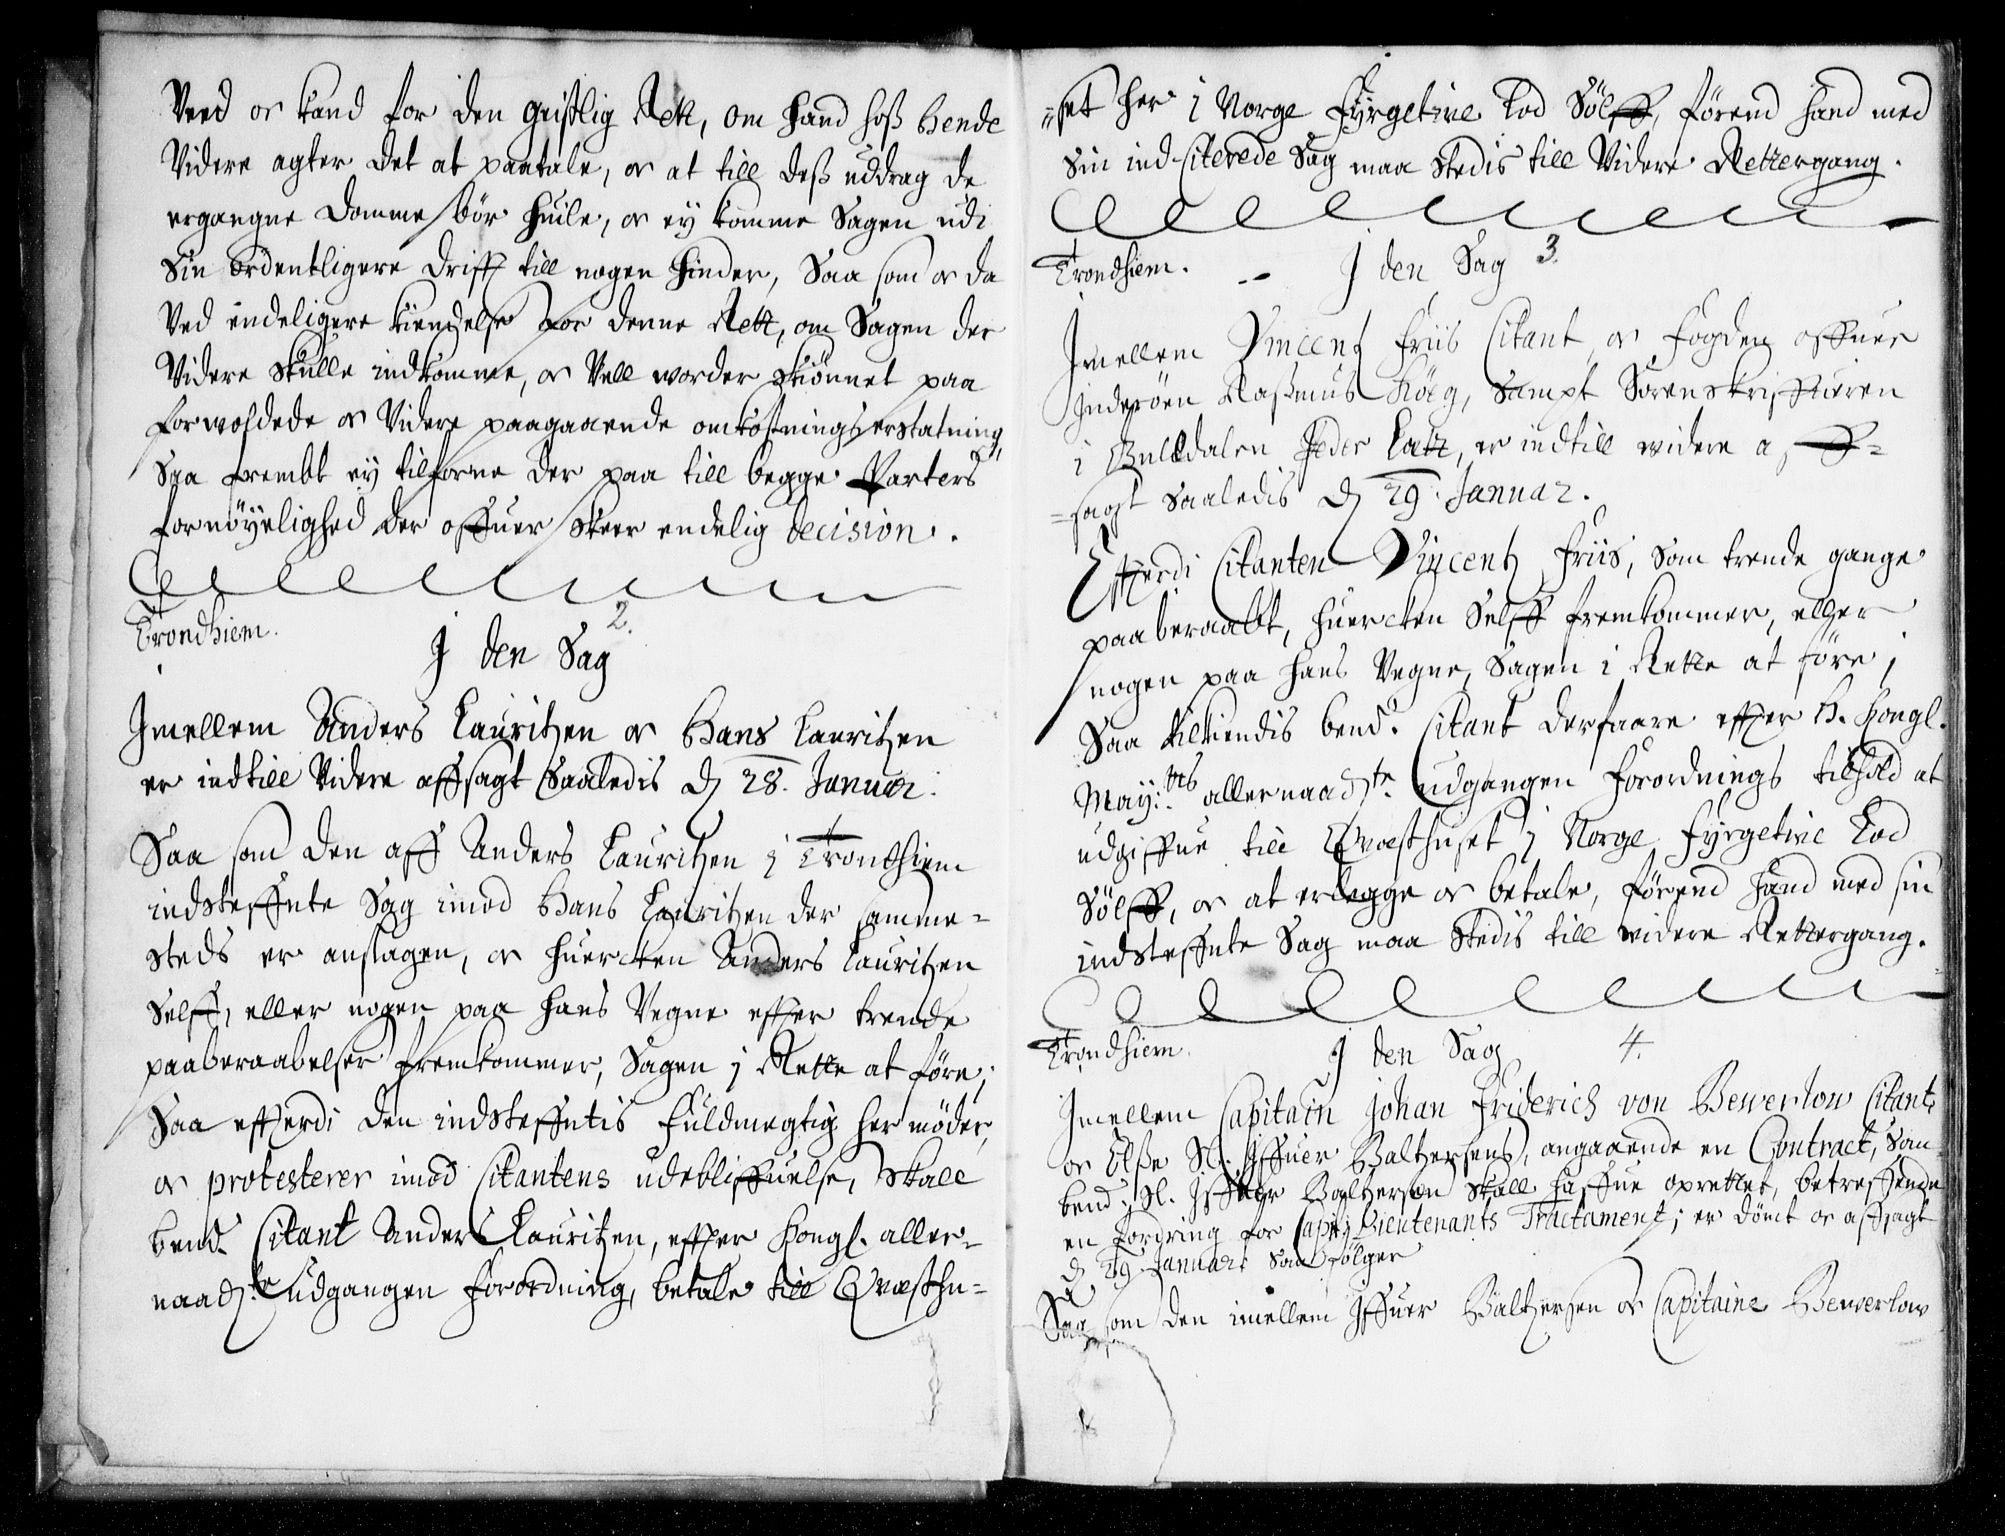 Veed os kand for den geistlig Rett, om hand hoß hende
Videre agter det at paatale, os at till deß uddrag de
ergangne domme bør huile, os ey komme Sagen udi
Sin ordentligere drifft till nogen hinder, Saa som os da
Ved endeligere kiendelse for denne Rett, om Sagen der
Videre skulle indkomme, os Vell worder skiønnet paa
forwoldede os Videre paagaaende omkostnings erstatning,
Saa frembt ey tilforne der paa till begge Parters
fornøyelighed der offuer skeer endelig decision.
Trondhiem.
2.
J den Sag
Jmellem Anders Lauritzen os Hans Lauritzen
er indtill Videre affsagt Saaledis d 28. Januar:
Saa som den aff Anders Lauritzen j Trondhiem
indsteffnte Sag imod Hans Lauritzen der samme=
steds er anslagen, os huercken Anders Lauritzen
Selff, eller nogen paa hans Vegne effter trende
paaberaabelser fremkommer, Sagen j Rette at føre;
Saa efftterdi den indsteffntis fuldmegtig her møder,
os protesterer imod Citantens udebliffuelse, skall
bend. Citant Anders Lauritzen, effter Kongl. aller=
naad.ste udgangen forordning, betale till Qvæsthu=
=set her i Norge Fyrgetive Lod Sølff, førend hand med
Sin ind-Citerede Sag maa stedis till Videre Rettergang.
Trondhiem.
J den Sag 3.
Jmellem Vincentz Friis Citant os fogden offuer
Inderøen Rasmus Høeg, sampt Sorenskriffueren
i Gulldalen Peder Catz, er indtill widere aff=
=sagt Saaledis d 29. Januar.
Effterdi Citanten Vincentz Friis, som trende gange
paaberaabt, huercken Selff fremkommer, eller
nogen paa hans Vegne, Sagen i Rette at føre;
Saa tilkiendis bend. Citant derfaare effter H. Kongl.
May:tts allernaad.ste udgangen forordnings tilhold at
udgiffue till Qvæsthuset j Norge fyrgetive Lod
Sølff, os at erlegge os betale, førend hand med sin
indsteffnte Sag maa stedis till widere Rettergang.
Trondhiem.
J den Sag 4.
Jmellem Capitain Johan Friderich von Bewerlow Citant,
os Elße Sl. Iffuer Baltzersens, angaaende en Contract, som
bend: Sl. Iffuer Baltzersen skall haffue oprettet, betreffende
en fordring for Capit: Lieutenants Tractament; er dømt os affsagt
d 29 Januari som følger
Saa som den imellem Iffuer Baltzersen os Capitaine Bewerlow